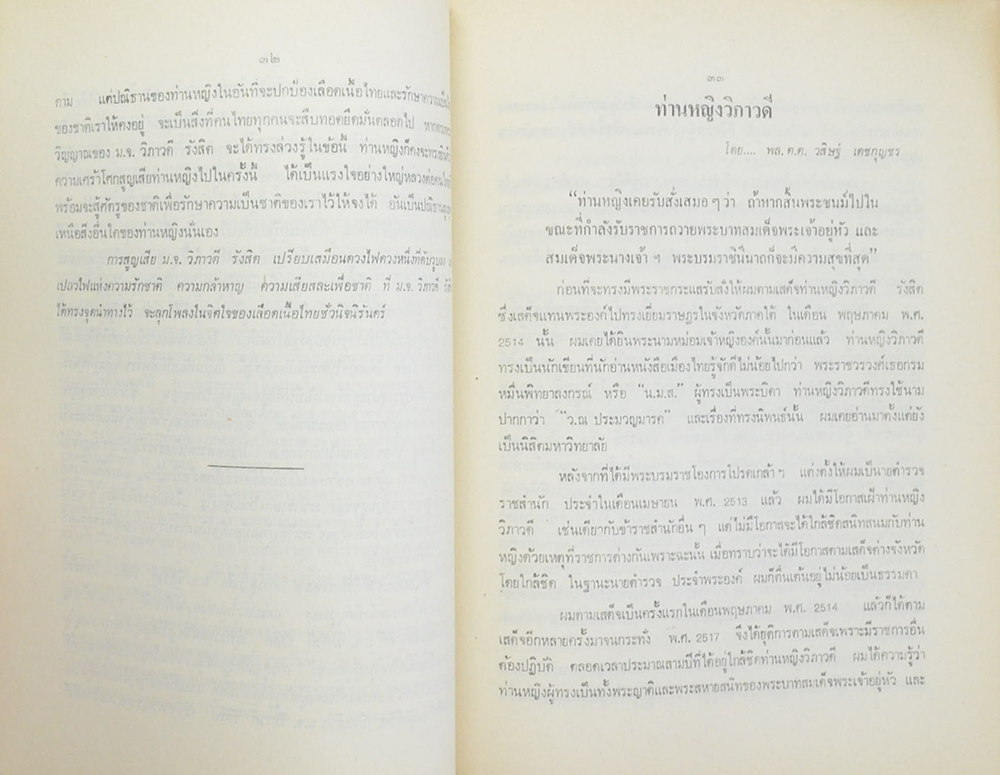 ๓๒
ตาม แต่ปณิธานของท่านหญิงในอันที่จะปกป้องเลือดเนื้อไทยและรักษาความเป็นไท
ของชาติเราให้คงอยู่ จะเป็นสิ่งที่คนไทยทุกคนจะสืบทอดยึดมั่นตลอดไป หาก
วิญญาณของ ม.จ. วิภาวดี รังสิต จะได้ทรงล่วงรู้ในข้อนี้ ท่านหญิงก็คงจะทรง
ความเศร้าโศกสูญเสียท่านหญิงไปในครั้งนี้ ได้เป็นแรงใจอย่างใหญ่หลวงต่อ
พร้อมจะสู้ศัตรูของชาติเพื่อรักษาความเป็นชาติของเราไว้ให้จงได้ อันเป็นปณิธาน
เหนือสิ่งอื่นใดของท่านหญิงนั่นเอง
การสูญเสีย ม.จ. วิภาวดี รังสิต เปรียบเสมือนดวงไฟดวงหนึ่งที่ดับวูบลง
เปลวไฟแห่งความรักชาติ ความกล้าหาญ ความเสียสละเพื่อชาติ ที่ ม.จ. วิภาวดี
ได้ทรงจุดนำทางไว้ จะลุกโพลงในจิตใจของเลือดเนื้อไทยชั่วนิจนิรันดร์
๓๓
ท่านหญิงวิภาวดี
โดย.... พล.ต.ต. วสิษฐ์ เดชกุญชร
“ท่านหญิงเคยรับสั่งเสมอ ๆ ว่า ถ้าหากสิ้นพระชนม์ไปใน
ขณะที่กำลังรับราชการถวายพระบาทสมเด็จพระเจ้าอยู่หัว และ
สมเด็จพระนางเจ้า ฯ พระบรมราชินีนาถก็จะมีความสุขที่สุด”
ก่อนที่จะทรงมีพระราชกระแสรับสั่งให้ผมตามเสด็จท่านหญิงวิภาวดี รังสิต
ซึ่งเสด็จแทนพระองค์ไปทรงเยี่ยมราษฎรในจังหวัดภาคใต้ ในเดือน พฤษภาคม พ.ศ.
2514 นั้น ผมเคยได้ยินพระนามหม่อมเจ้าหญิงองค์นั้นมาก่อนแล้ว ท่านหญิงวิภาวดี
ทรงเป็นนักเขียนที่นักอ่านหนังสือเมืองไทยรู้จักดีไม่น้อยไปกว่า พระราชวรวงศ์เธอกรม
หมื่นพิทยาลงกรณ์ หรือ “น.ม.ส.” ผู้ทรงเป็นพระบิดา ท่านหญิงวิภาวดีทรงใช้นาม
ปากกาว่า “ว.ณ ประมวญมารค” และเรื่องที่ทรงนิพนธ์นั้น ผมเคยอ่านมาตั้งแต่ยัง
เป็นนิสิตมหาวิทยาลัย
หลังจากที่ได้มีพระบรมราชโองการโปรดเกล้า ฯ แต่งตั้งให้ผมเป็นนายตำรวจ
ราชสำนัก ประจำในเดือนเมษายน พ.ศ. 2513 แล้ว ผมได้มีโอกาสเฝ้าท่านหญิง
วิภาวดี เช่นเดียวกับข้าราชสำนักอื่น ๆ แต่ไม่มีโอกาสจะได้ใกล้ชิดสนิทสนมกับท่าน
หญิงด้วยเหตุที่ราชการต่างกันเพราะฉะนั้น เมื่อทราบว่าจะได้มีโอกาสตามเสด็จต่างจังหวัด
โดยใกล้ชิด ในฐานะนายตำรวจ ประจำพระองค์ ผมก็ตื่นเต้นอยู่ไม่น้อยเป็นธรรมดา
ผมตามเสด็จเป็นครั้งแรกในเดือนพฤษภาคม พ.ศ. 2514 แล้วก็ได้ตาม
เสด็จอีกหลายครั้งมาจนกระทั่ง พ.ศ. 2517 จึงได้ยุติการตามเสด็จเพราะมีราชการอื่น
ต้องปฏิบัติ ตลอดเวลาประมาณสามปีที่ได้อยู่ใกล้ชิดท่านหญิงวิภาวดี ผมได้ความรู้ว่า
ท่านหญิงผู้ทรงเป็นทั้งพระญาติและพระสหายสนิทของพระบาทสมเด็จพระเจ้าอยู่หัว และ